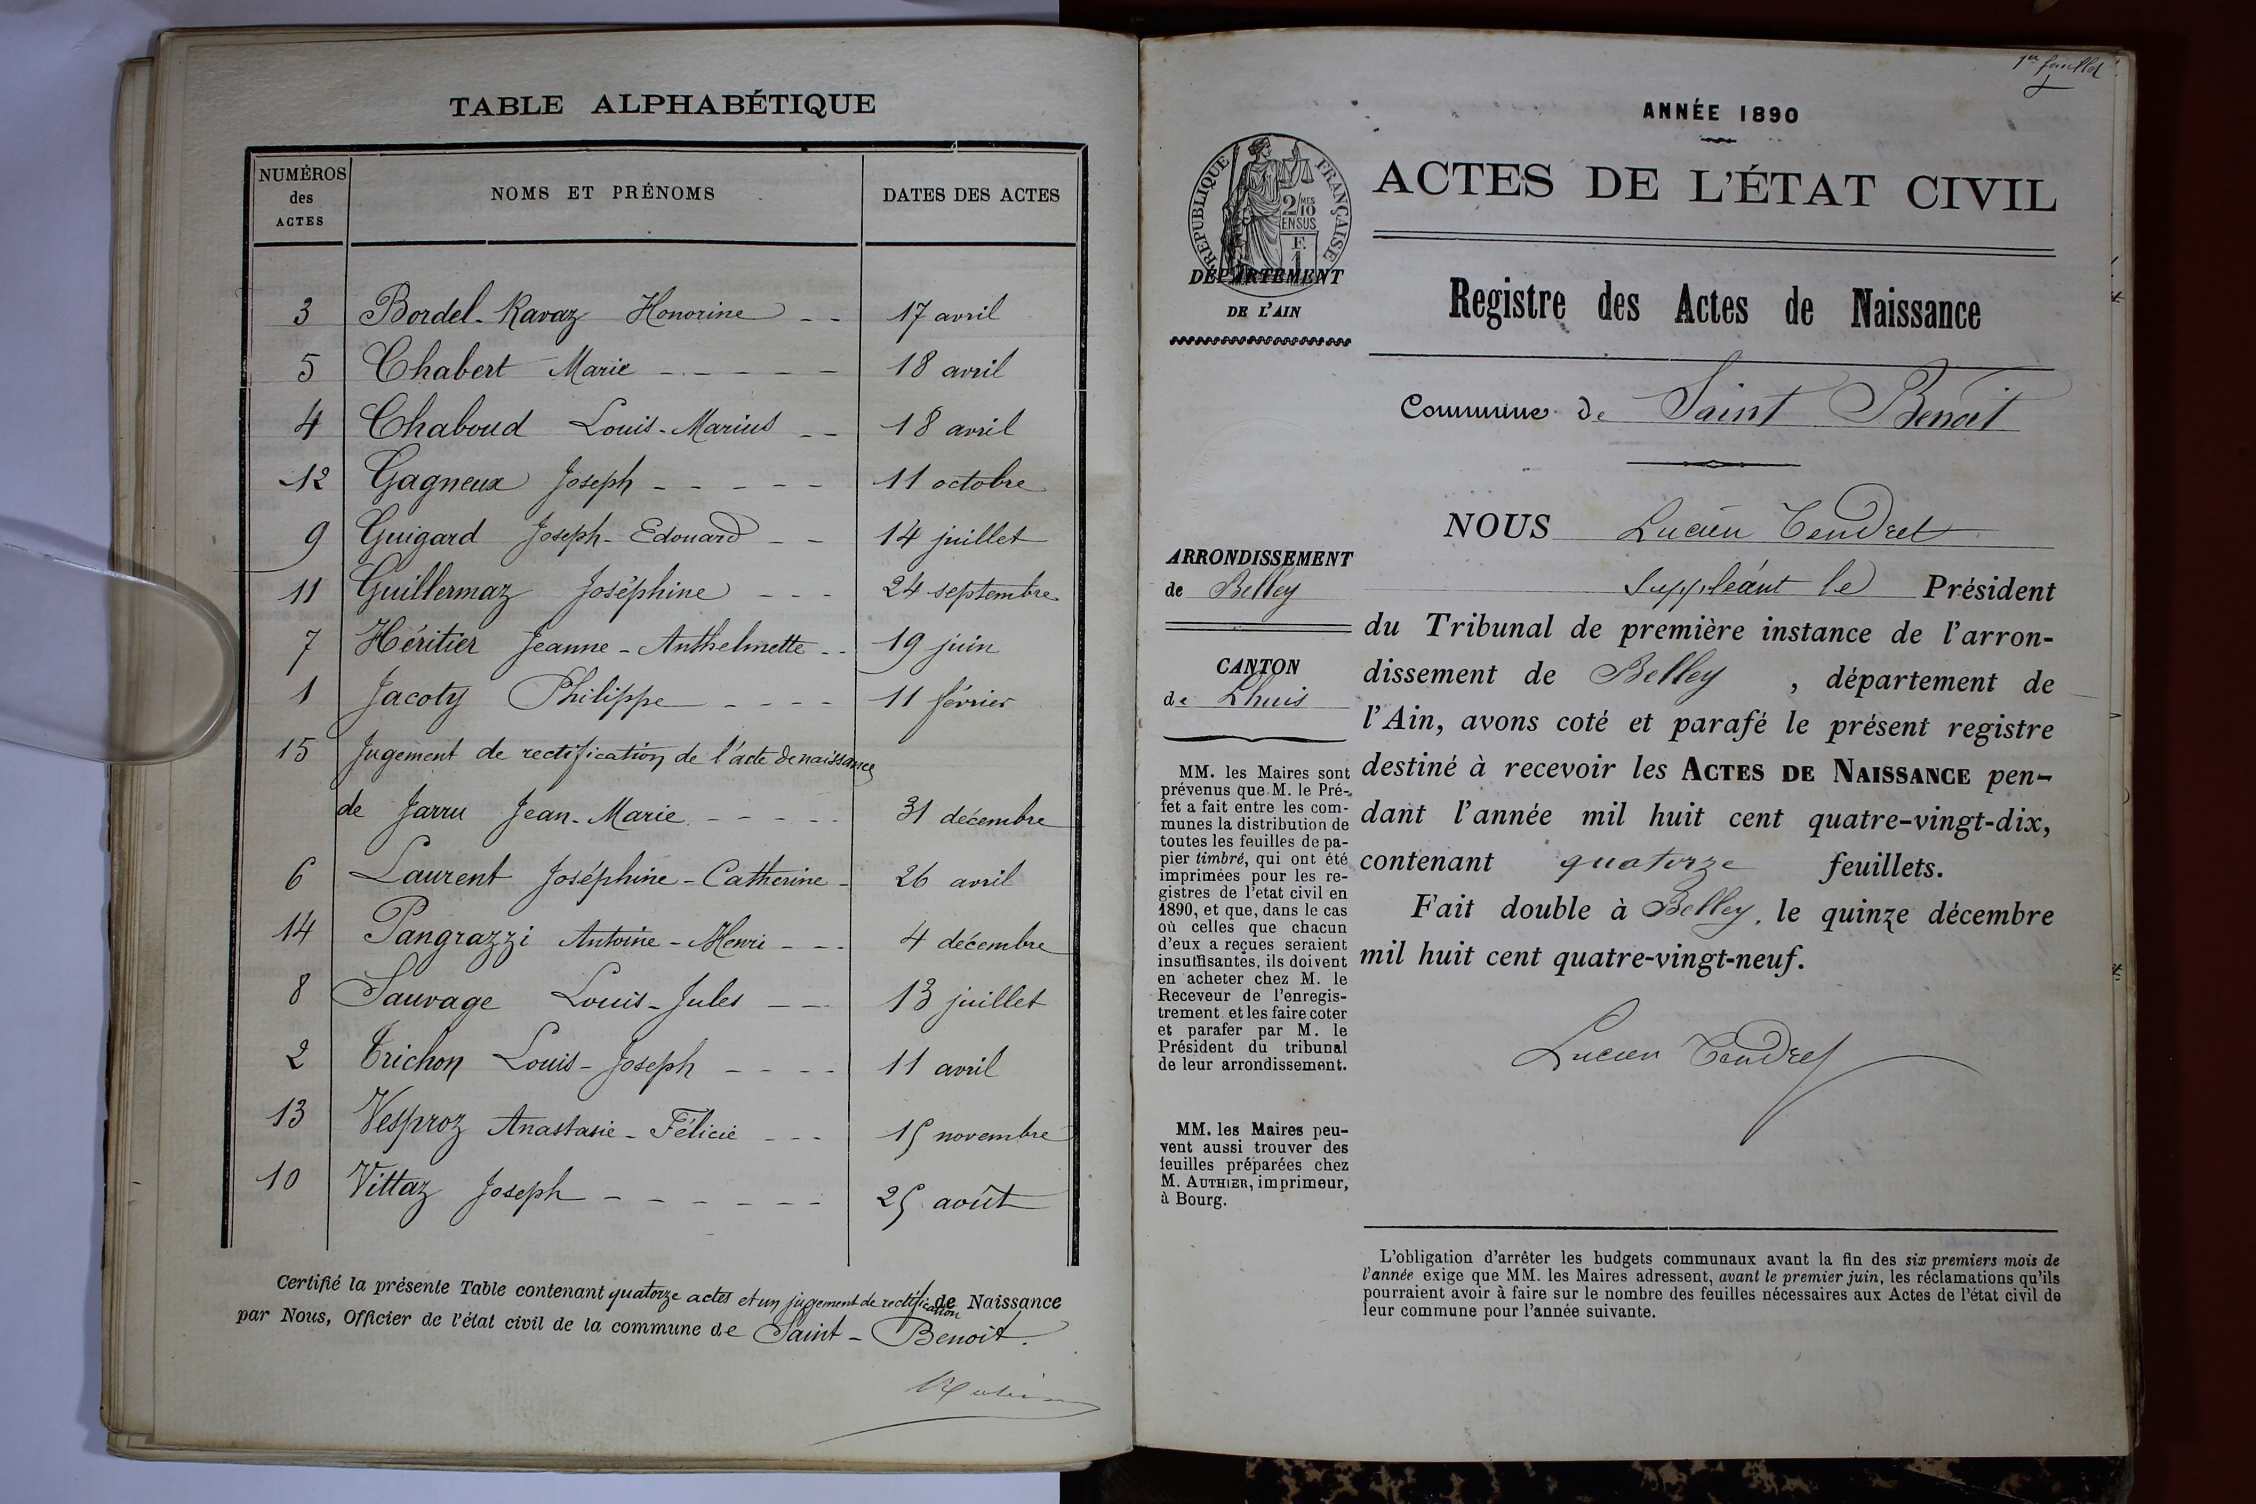 TABLE ALPHABÉTIQUE
NUMÉROS des ACTES NOMS ET PRÉNOMS DATES DES ACTES
3 Bordel-Ravaz Honorine 17 avril
5 Chabert Marie 18 avril
4 Chaboud Louis-Marius 18 avril
12 Gagneux Joseph 11 octobre
9 Guigard Joseph-Edouard 14 juillet
11 Guillermaz Joséphine 24 septembre
7 Héritier Jeanne-Anthelmette 19 juin
1 Jacoty Philippe 11 février
15 Jugement de rectification de l'acte de naissance
de Jarru Jean-Marie 31 décembre
6 Laurent Joséphine-Catherine 26 avril
14 Pangrazzi Antoine-Henri 4 décembre
8 Sauvage Louis-Jules 13 juillet
2 Trichon Louis-Joseph 11 avril
13 Vesproz Anastasie-Félicie 15 novembre
10 Vittaz Joseph 25 août
Certifié la présente Table contenant quatorze actes et un jugement de rectification de Naissance
par Nous, Officier de l'état civil de la commune de Saint-Benoit.
1er feuillet
ANNÉE 1890
RÉPUBLIQUE FRANÇAISE
2/10MES
EN SUS
F.
1
ACTES DE L'ÉTAT CIVIL
DÉPARTEMENT
DE L'AIN
Registre des Actes de Naissance
Commune de Saint Benoit
NOUS Lucien Tendret
Suppléant le Président
du Tribunal de première instance de l'arron-
dissement de Belley, département de
l'Ain, avons coté et parafé le présent registre
destiné à recevoir les ACTES DE NAISSANCE pen-
dant l'année mil huit cent quatre-vingt-dix,
contenant quatorze feuillets.
Fait double à Belley, le quinze décembre
mil huit cent quatre-vingt-neuf.
Lucien Tendret
ARRONDISSEMENT
de Belley
CANTON
de Lhuis
MM. les Maires sont
prévenus que M. le Pré-
fet a fait entre les com-
munes la distribution de
toutes les feuilles de pa-
pier timbré, qui ont été
imprimées pour les re-
gistres de l'etat civil en
1890, et que, dans le cas
où celles que chacun
d'eux a reçues seraient
insuffisantes, ils doivent
en acheter chez M. le
Receveur de l'enregis-
trement et les faire coter
et parafer par M. le
Président du tribunal
de leur arrondissement.
MM. les Maires peu-
vent aussi trouver des
feuilles préparées chez
M. AUTHIER, imprimeur,
à Bourg.
L'obligation d'arrêter les budgets communaux avant la fin des six premiers mois de
l'année exige que MM. les Maires adressent, avant le premier juin, les réclamations qu'ils
pourraient avoir à faire sur le nombre des feuilles nécessaires aux Actes de l'état civil de
leur commune pour l'année suivante.